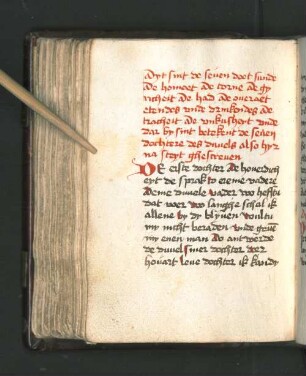 Dyt sint de seuen doet sunde
De homoet de torne de gy
richeit de had de oueraet
etendes vnde drinkendes de
tracheit de vnkusheit vnde
dar by sint betekent de seuen
dochtere des duuels also hyr
na steyt ghescreuen
De erste dochter de houerdich
eyt de sprak to ereme vadere
deme duuele vader wo
dat wer wo langhe schal ik
allene by dy blyuen wultu
my nicht beraden vnde gheue
my enen man do antwerde
de duuel syner dochter der
houart leue dochter ik kan dy